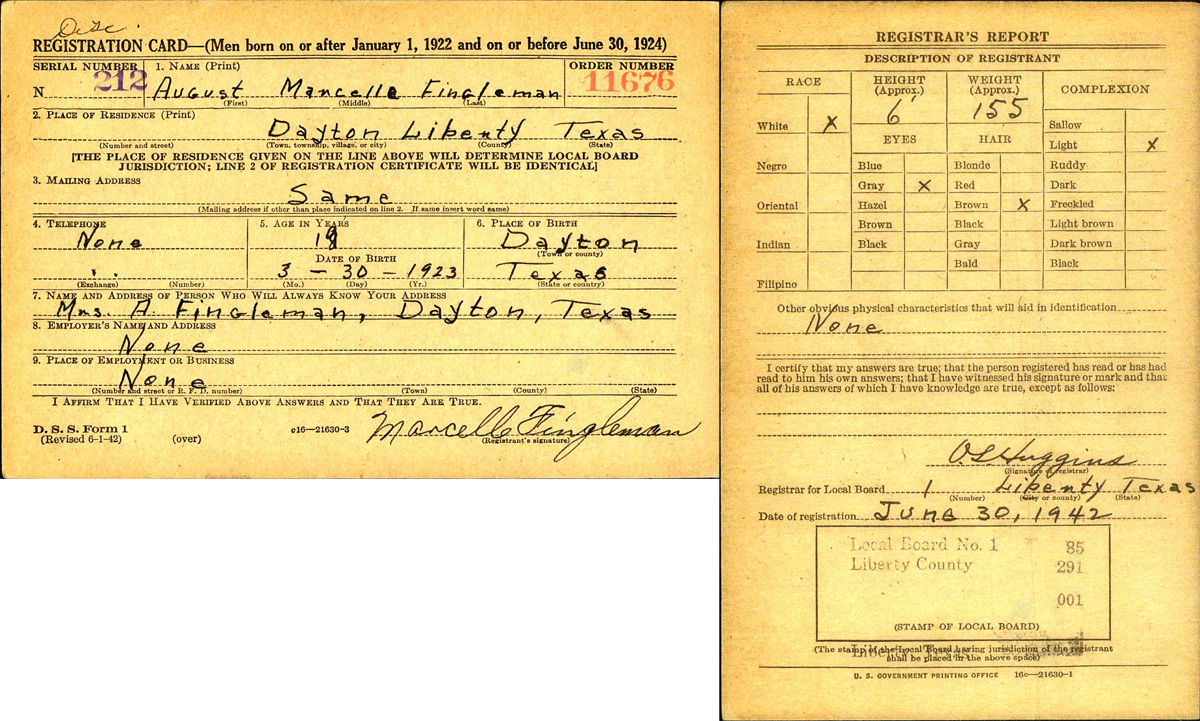 Disc.
REGISTRATION CARD—(Men born on or after January 1, 1922 and on or before June 30, 1924)
SERIAL NUMBER 1. NAME (Print) ORDER NUMBER
N 212 August Marcelle Fingleman 11676
(First) (Middle) (Last)
2. PLACE OF RESIDENCE (Print)
Dayton Liberty Texas
(Number and street) (Town, township, village, or city) (County) (State)
[THE PLACE OF RESIDENCE GIVEN ON THE LINE ABOVE WILL DETERMINE LOCAL BOARD
JURISDICTION; LINE 2 OF REGISTRATION CERTIFICATE WILL BE IDENTICAL]
3. MAILING ADDRESS
Same
(Mailing address if other than place indicated on line 2. If same insert word same)
4. TELEPHONE 5. AGE IN YEARS 6. PLACE OF BIRTH
None 19 Dayton
DATE OF BIRTH (Town or county)
" 3 - 30 - 1923 Texas
(Exchange) (Number) (Mo.) (Day) (Yr.) (State or country)
7. NAME AND ADDRESS OF PERSON WHO WILL ALWAYS KNOW YOUR ADDRESS
Mrs. A. Fingleman, Dayton, Texas
8. EMPLOYER'S NAME AND ADDRESS
None
9. PLACE OF EMPLOYMENT OR BUSINESS
None
(Number and street or R. F. D. number) (Town) (County) (State)
I AFFIRM THAT I HAVE VERIFIED ABOVE ANSWERS AND THAT THEY ARE TRUE.
D. S. S. Form 1
(Revised 6-1-42) (over) c16—21630-3 Marcelle Fingleman
(Registrant's signature)
REGISTRAR'S REPORT
DESCRIPTION OF REGISTRANT
RACE HEIGHT (Approx.) WEIGHT (Approx.) COMPLEXION
6' 155
White X Sallow
EYES HAIR Light X
Negro Blue Blonde Ruddy
Gray X Red Dark
Oriental Hazel Brown X Freckled
Brown Black Light brown
Indian Black Gray Dark brown
Bald Black
Filipino
Other obvious physical characteristics that will aid in identification
None
I certify that my answers are true; that the person registered has read or has had
read to him his own answers; that I have witnessed his signature or mark and that
all of his answers of which I have knowledge are true, except as follows:
O. L. Huggins
(Signature of registrar)
Registrar for Local Board 1 Liberty Texas
(Number) (City or county) (State)
Date of registration June 30, 1942
Local Board No. 1 85
Liberty County 291
001
(STAMP OF LOCAL BOARD)
Liberty, Texas
(The stamp of the Local Board having jurisdiction of the registrant
shall be placed in the above space)
U. S. GOVERNMENT PRINTING OFFICE 16c—21630-1